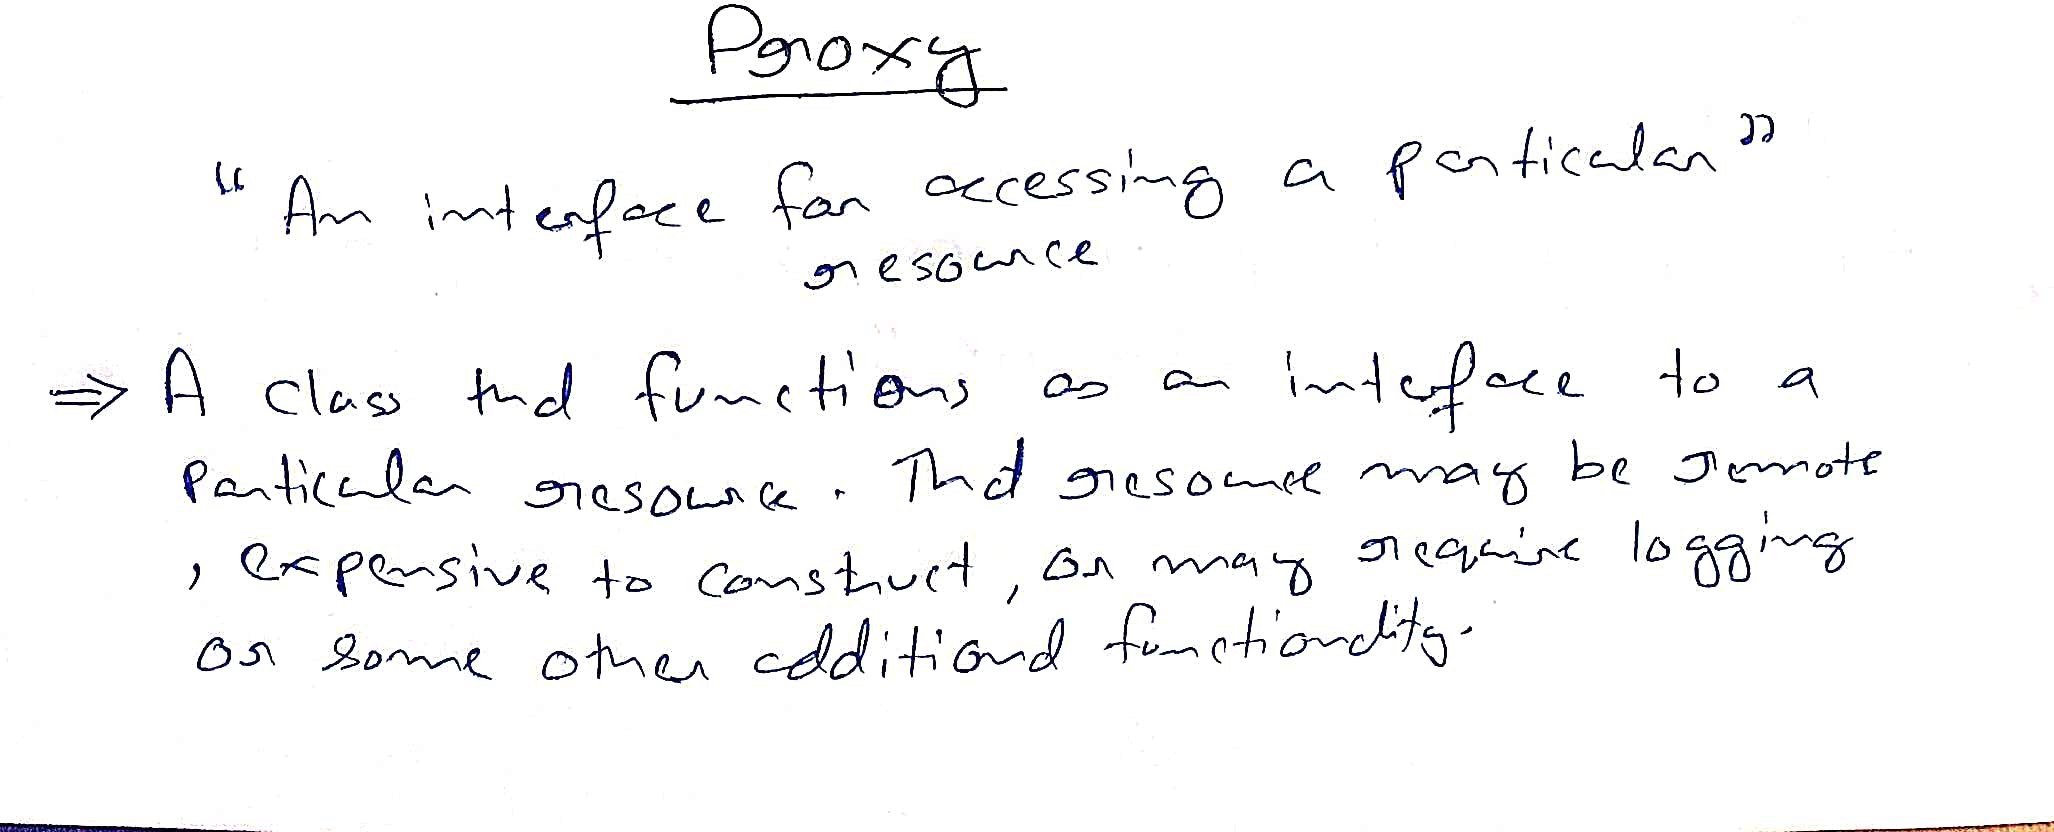 Proxy
"An interface for accessing a particular"
resource
⇒ A class that functions as an interface to a
particular resource. That resource may be remote
, expensive to construct, or may require logging
or some other additional functionality.